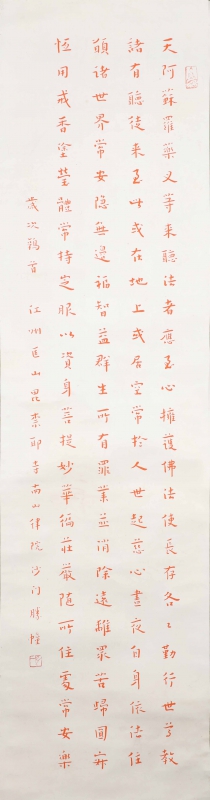 天阿蘇羅藥叉等來聽法者應至心擁護佛法使長存各〻勤行世尊教
諸有聽徒來至此或在地上或居空常於人世起慈心晝夜自身依法住
願諸世界常安隱無邊福智益群生所有罪業並消除遠離眾苦歸圓寂
恒用戒香塗瑩體常持定服以資身菩提妙華徧莊嚴隨所住處常安樂
歲次鶉首 江州匡山毘柰耶寺南山律院沙門勝幢